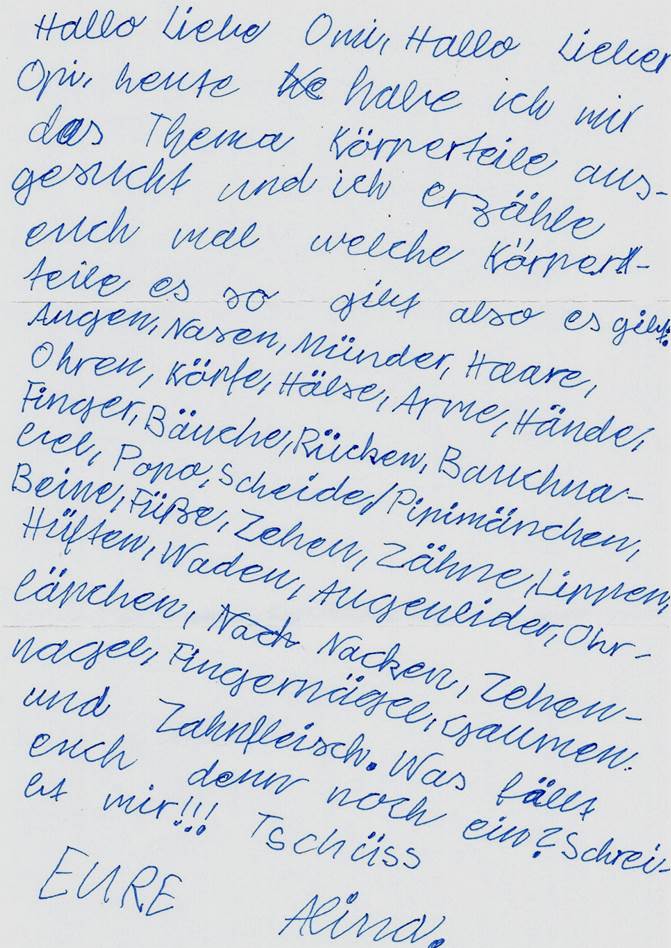 Hallo Liebe Omi, Hallo Lieber
Opi, heute habe ich mir
das Thema Körperteile aus-
gesucht und ich erzähle
euch mal welche Körper-
teile es so gibt also es gibt:
Augen, Nasen, Münder, Haare,
Ohren, Körfe, Hälse, Arme, Hände,
Finger, Bäuche, Rücken, Bauchna-
bel, Popo, Scheide/Pipimänchen,
Beine, Füße, Zehen, Zähne, Lippen
Hüften, Waden, Augenlider, Ohr-
läpchen, Nach Nacken, Zehen-
nagel, Fingernägel, Gaumen.
und Zahnfleisch. Was fällt
euch denn noch ein? Schrei-
bt mir!!! Tschüss
EURE Alina.